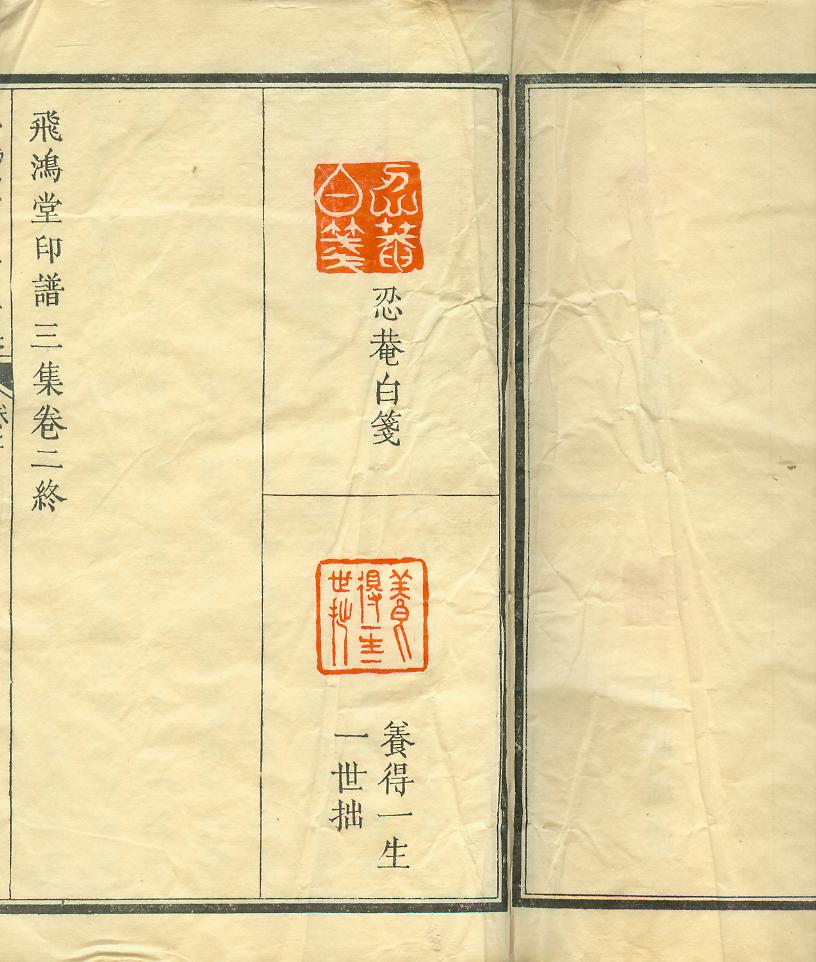 忍菴白箋
忍菴白箋
養得一生一世拙
養得一生
一世拙
飛鴻堂印譜三集卷二終